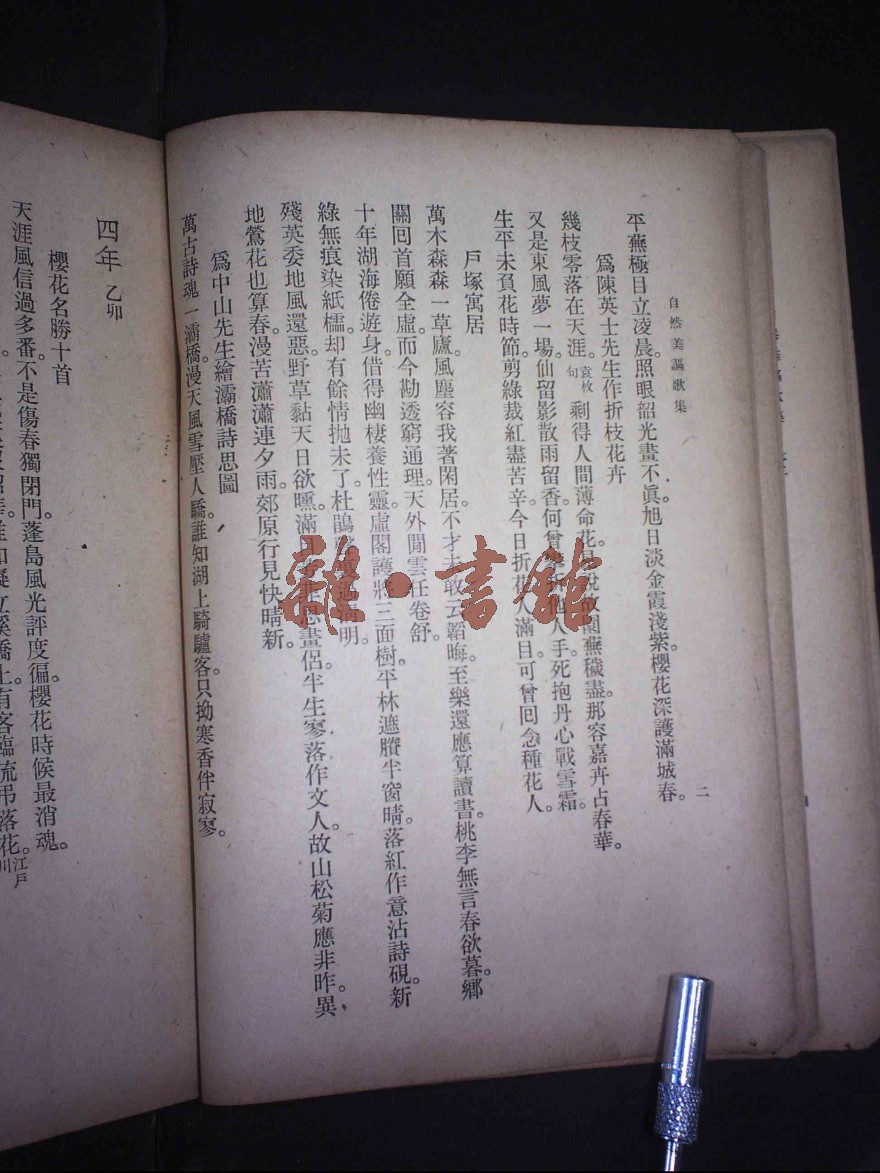 自然美謳歌集
二
平蕪極目立凌晨。照眼韶光畫不眞。旭日淡金霞淺紫。櫻花深護滿城春。
爲陳英士先生作折枝花卉
幾枝零落在天涯。袁枚句 剩得人間薄命花。 故園蕪穢盡。那容嘉卉占春華。
又是東風夢一場。仙留影散雨留香。何曾 他人手。死抱丹心戰雪霜。
生平未負花時節。剪綠裁紅盡苦辛。今日折花人滿目。可曾回念種花人。
戶塚寓居
萬木森森一草廬。風塵容我著閑居。不才 敢云韜晦。至樂還應算讀書。桃李無言春欲暮。鄉
關回首願全虛。而今勘透窮通理。天外閒雲任卷舒。
十年湖海倦遊身。借得幽棲養性靈。虛閣護將三面樹。平林遮賸半窗晴。落紅作意沾詩硯。新
綠無痕染紙櫺。却有餘情抛未了。杜鵑 過淸明。
殘英委地風還惡。野草黏天日欲曛。滿 畫侶。半生寥落作文人。故山松菊應非昨。異
地鶯花也算春。漫苦瀟瀟連夕雨。郊原行見快晴新。
爲中山先生繪灞橋詩思圖
萬古詩魂一灞橋。漫天風雪壓人驕。誰知湖上騎驢客。只拗寒香伴寂寥。
四年 乙卯
櫻花名勝十首
天涯風信過多番。不是傷春獨閉門。蓬島風光評度徧。櫻花時候最消魂。
立溪橋上。有客臨流弔落花。江戶川
雜·書館